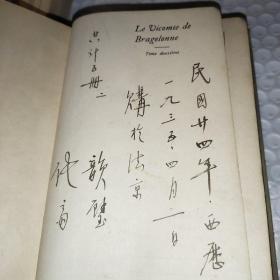 Le Vicomte de
Bragelonne
Tome deuxième
民國廿四年·西歷
一九三五·四月一日
購於法京
共計五册二
韻璧